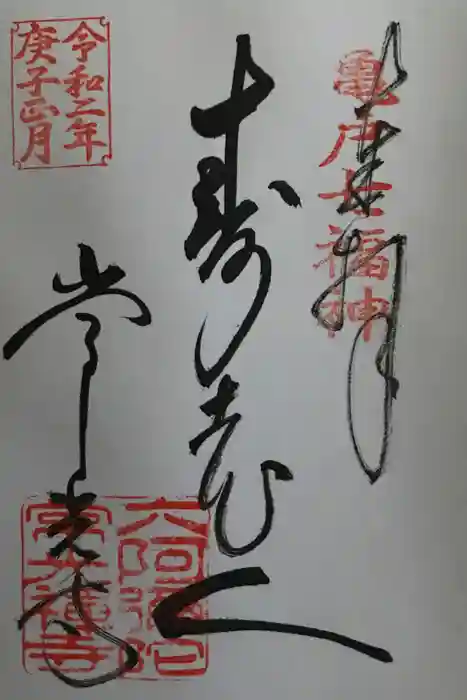 亀戸七福神
奉拝
寿老人
令和二年
庚子正月
常光寺
六阿弥陀
常光福寺